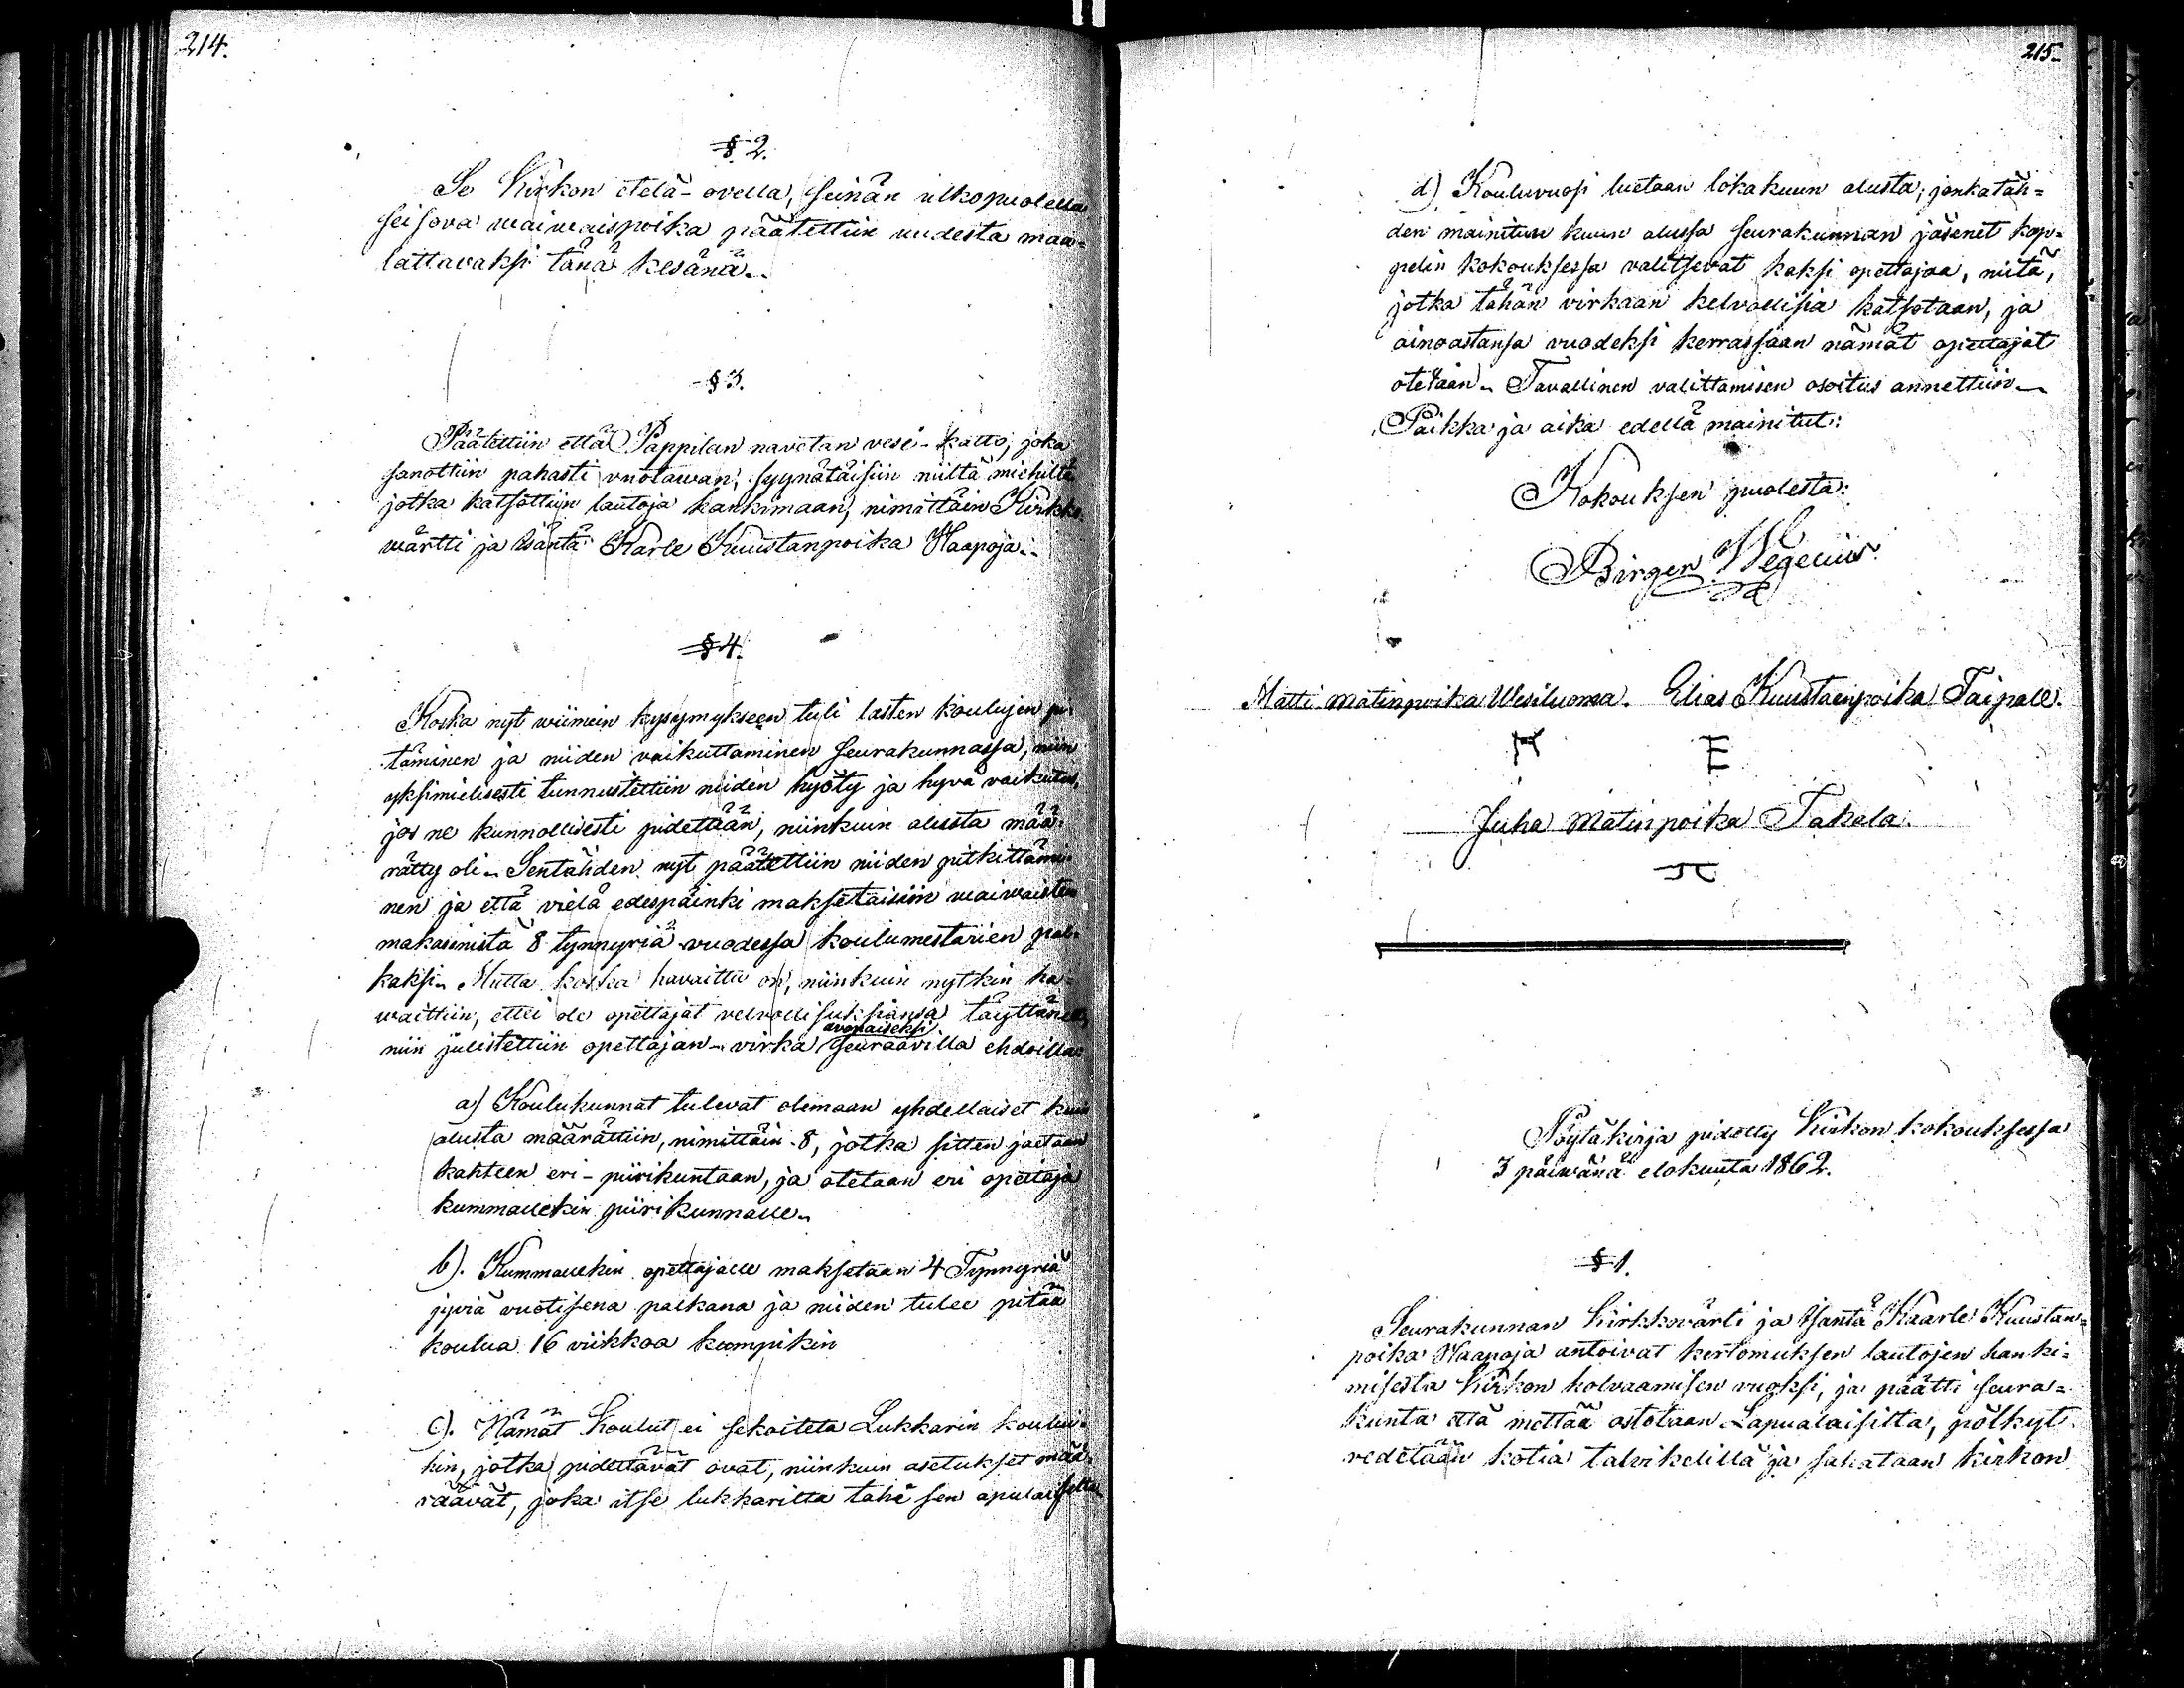 214.
§ 2.
Se Kirkon etelä-ovella, seinän ulkopuolella
seisova waiwaispoika päätettiin uudesta maa-
lattavaksi tänä kesänä.
§ 3.
Päätettiin että Pappilan navetan vesi-katto, joka
sanottiin pahasti vuotawan, syynätäisiin niiltä miehiltä
jotka katsottiin lautoja hankimaan, nimittäin Kirkko-
wärtti ja isäntä Karle Kuustanpoika Haapoja.
§ 4.
Koska nyt wiimein kysymykseen tuli lasten koulujen pi-
täminen ja niiden vaikuttaminen seurakunnassa, niin
yksimielisesti tunnustettiin niiden hyöty ja hyvä vaikutus,
jos ne kunnollisesti pidetään, niinkuin alusta mää-
rätty oli. Sentähden nyt päätettiin niiden pitkittämi-
nen ja että vielä edespäinki maksetaisiin waiwaisten
makasinista 8 tynnyriä vuodessa koulumestarien pal-
kaksi. Mutta koska havaittu on, niinkuin nytkin ha-
waittiin, ettei ole opettajat velvollisuksiansa täyttäneet,
niin julistettiin opettajan-virka avonaiseksi seuraavilla ehdoilla:
a) Koulukunnat tulevat olemaan yhdellaiset kuin
alusta määrättiin, nimittäin 8, jotka sitten jaetaan
kahteen eri-piirikuntaan, ja otetaan eri opettaja
kummallekin piirikunnalle.
b). Kummallekin opettajalle maksetaan 4 Tynnyriä
jyviä vuotisena palkana ja niiden tulee pitää
koulua 16 viikkoa kumpikin
c). Nämät koulut ei sekoiteta Lukkarin koului-
hin, jotka pidettävät ovat, niinkuin asetukset mää-
räävät, joka itse lukkarilta tahi sen apulaiselta
215.
d) Kouluvuosi luetaan lokakuun alusta, jonkatäh-
den mainitun kuun alussa seurakunnan jäsenet kap-
pelin kokouksessa valitsevat kaksi opettajaa, niitä,
jotka tähän virkaan kelvollisia katsotaan, ja
ainoastansa vuodeksi kerrassaan nämät opettajat
otetaan. Tavallinen valittamisen osoitus annettiin.
Paikka ja aika edellä mainitut:
Kokouksen puolesta:
Birger Wegelius.
Matti Matinpoika Wesiluoma. Elias Kuustaanpoika Taipale.
M E
Juha Matinpoika Takala.
Pöytäkirja pidetty Kirkon kokouksessa
3 päiwänä elokuuta 1862.
§ 1.
Seurakunnan Kirkkwärti ja Isäntä Kaarle Kuustan-
poika Haapoja antoivat kertomuksen lautojen hanki-
misesta Kirkon holvaamisen vuoksi, ja päätti seura-
kunta että mettää ostetaan Lapualaisilta, pölkyt
vedetään kotia talvikelillä ja sahataan kirkon